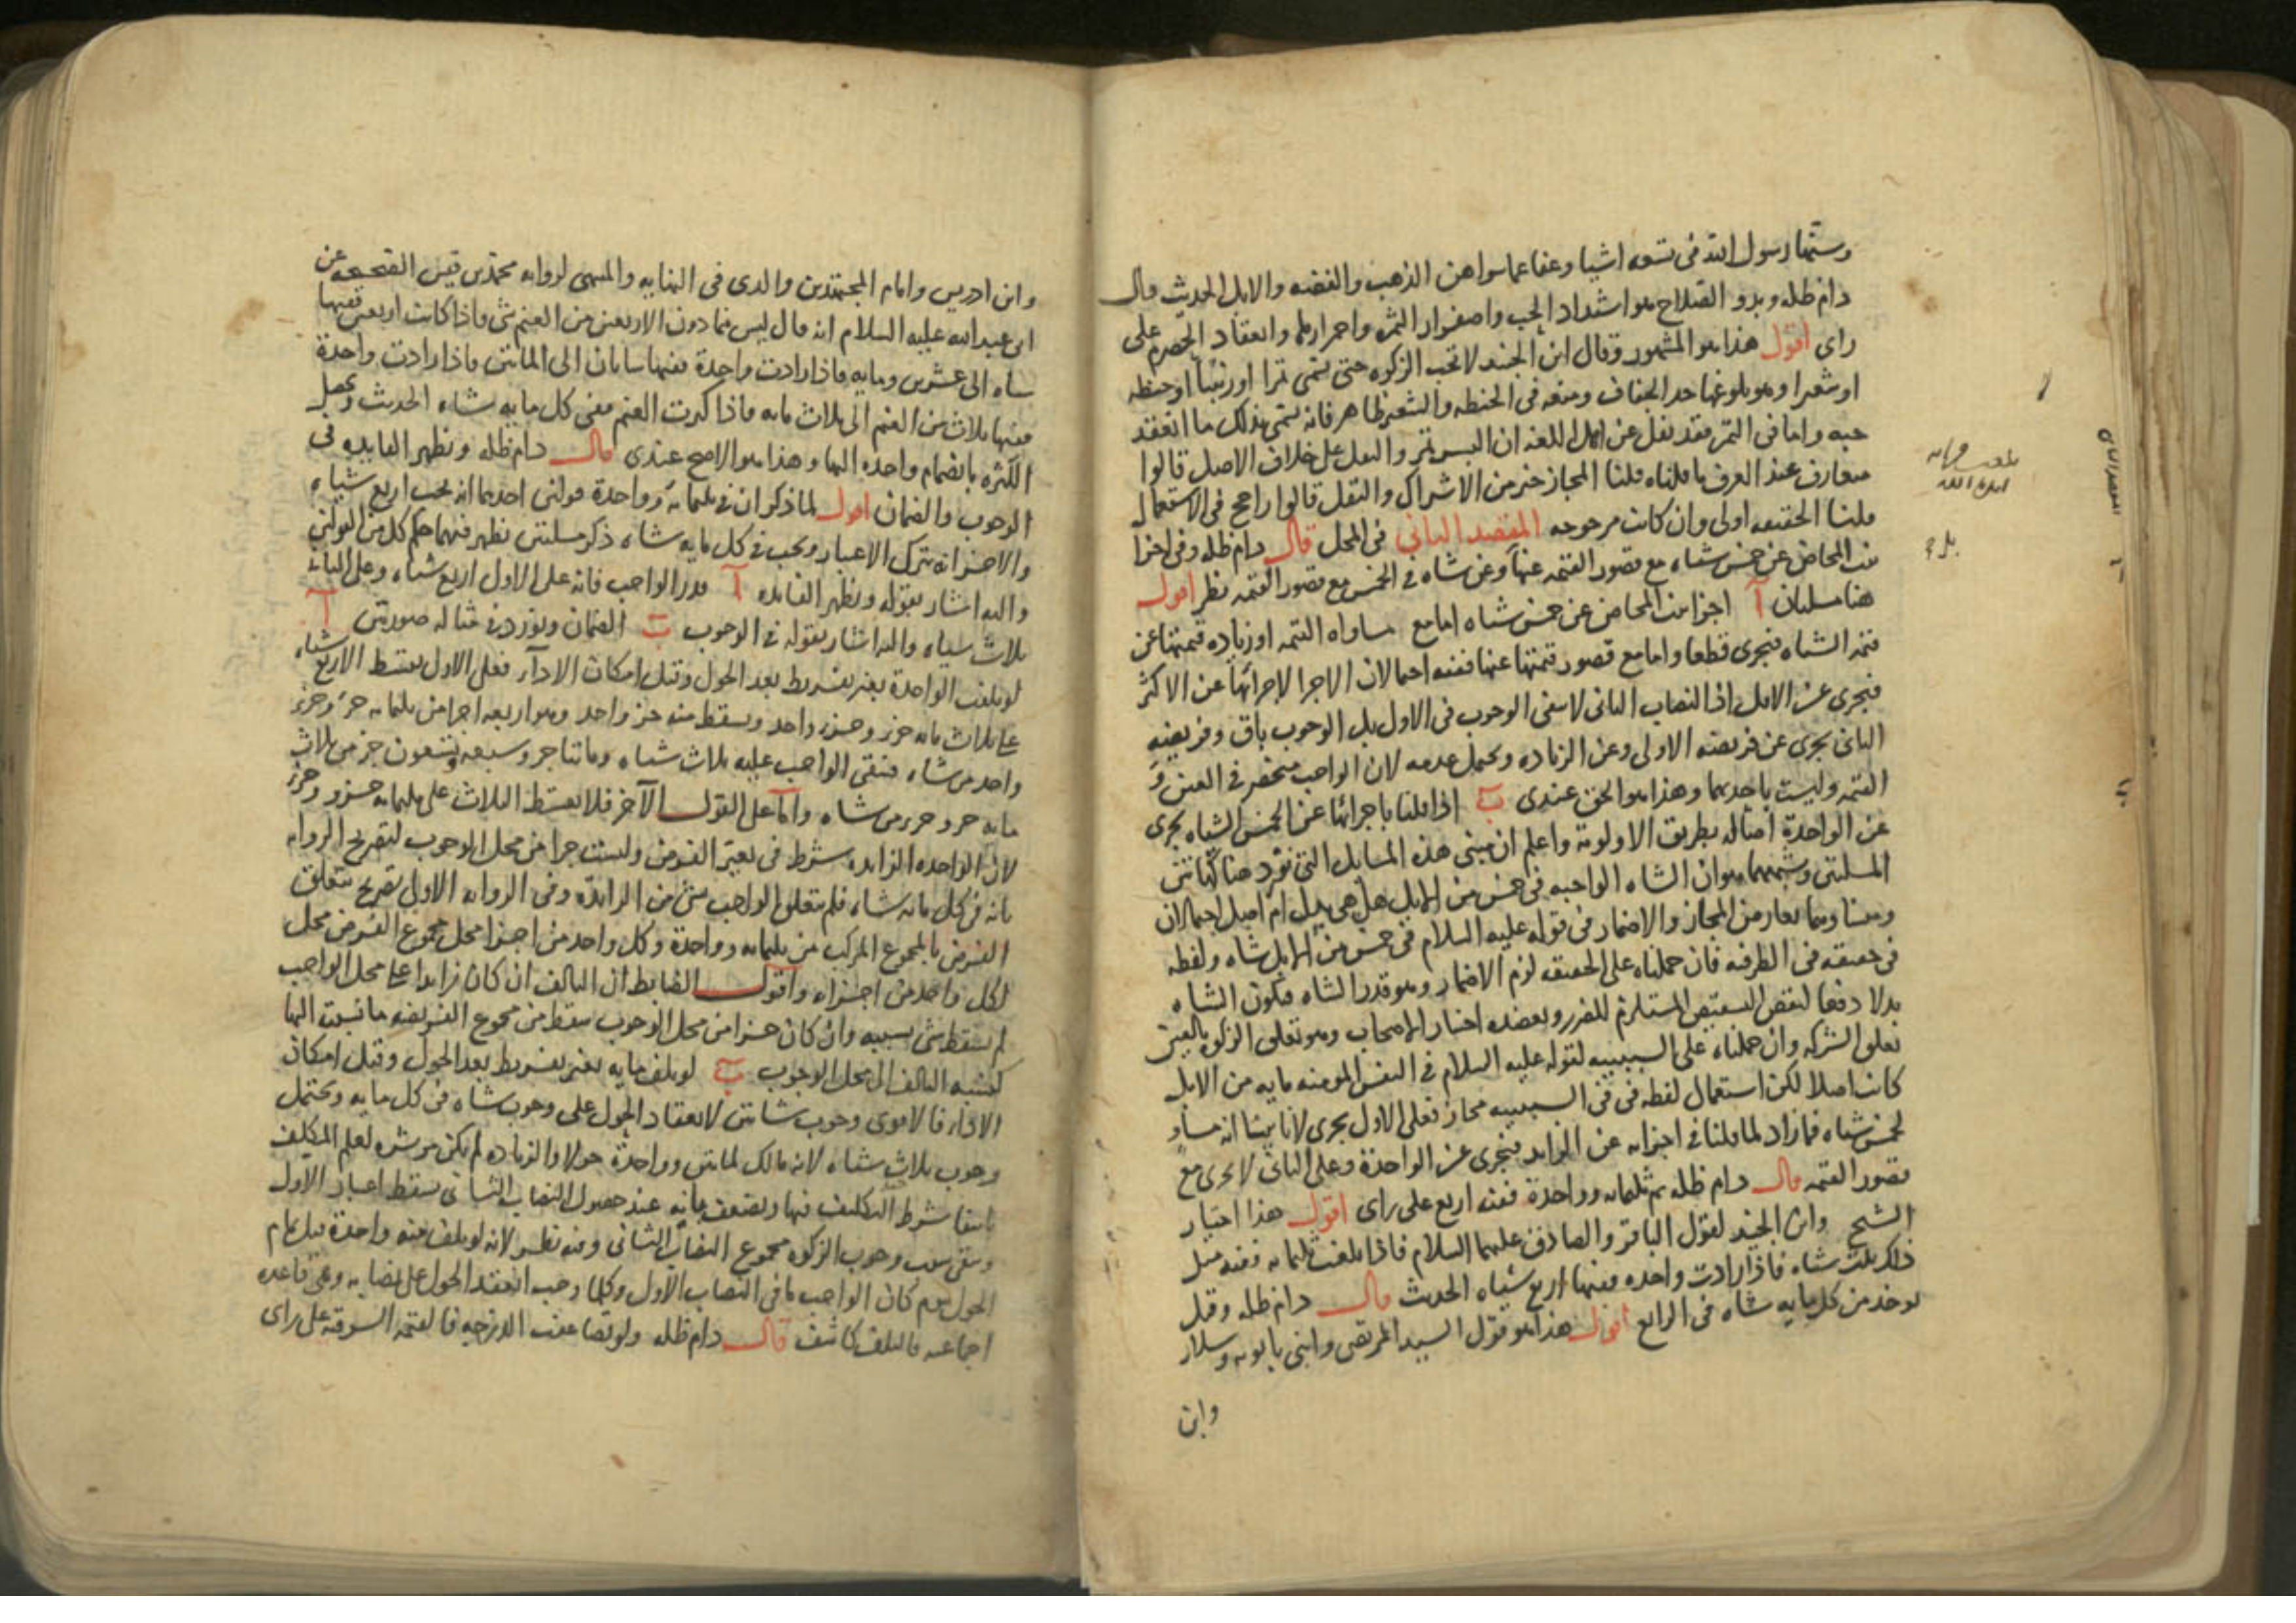 وسنها رسول الله فى تسعه اشيا وعفا عما سواهن الذهب والفضه والابل الحديث قال
دام ظله وبدو الصلاح هو اشتداد الحب واصفرار الثمره واحمرارها وانعقاد الحصرم على
راى اقول هذا هو المشهور وقال ابن الجنيد لا تجب الزكوه حتى تسمى تمرا او زبيبا او حنطه
او شعيرا وهو بلوغها حد الجفاف ومنعه فى الحنطه والشعير ظاهر فانه تسمى بذلك ما انعقد
حبه واما فى التمر فقد نقل عن اهل اللغه ان البسر تمر والنقل على خلاف الاصل قالوا
متعارف عند العرف ما قلناه قلنا المجاز خير من الاشتراك والنقل قالوا راجح فى الاستعمال
قلنا الحقيقه اولى وان كانت مرجوحه المقصد الثانى فى المحل قال دام ظله وفى اجزا
بنت المخاض عن خمس شياه مع قصور القيمه عنها وعن شاه فى الخمس مع قصور القيمه نظر اقول
هنا مسلتان آ اجزا بنت المخاض عن خمس شياه اما مع مساواه القيمه او زياده قيمتها عن
قيمه الشياه فتجزى قطعا واما مع قصور قيمتها عنها ففيه احتمالان الاجزا لاجزائها عن الاكثر
فتجزى عن الاقل اذ النصاب الثانى لا ينفى الوجوب فى الاول بل الوجوب باق وفريضه
الثانى تجزى عن فريضه الاولى وعن الزياده ويحتمل عدمه لان الواجب منحصر فى العين و
القيمه وليست باحديهما وهذا هو الحق عندى ب اذا قلنا باجزائها عن الخمس الشياه تجزى
عن الواحدة امثاله بطريق الاولويه واعلم ان مبنى هذه المسايل التى نورد هنا كهاتين
المسلتين وشبههما هو ان الشاه الواجبه فى خمس من الابل هل هى بدل ام اصل احتمالان
ومنشاوهما تعارض المجاز والاضمار فى قوله عليه السلام فى خمس من الابل شاه ولفظه
فى حقيقه فى الظرفيه فان حملناه على الحقيقه لزم الاضمار وهو قدر الشاه فيكون الشاه
بدلا دفعا لنقص التشقيص المستلزم للضرر وبعضده اختيار الاصحاب وهو تعلق الزكوه بالعين
تعلق الشركه وان حملناه على السببيه لقوله عليه السلام فى النفس المومنه مايه من الابل
كانت اصلا لكن استعمال لفظه فى فى السببيه مجاز فعلى الاول تجزى لانا بينا انه مساو
لخمس شياه فما زاد لما قلنا فى اجزايه عن الزايد فتجزى عن الواحدة وعلى الثانى لا تجزى مع
قصور القيمه قال دام ظله ثم ثلثمايه وواحدة ففيه اربع على راى اقول هذا اختيار
الشيخ وابن الجنيد لقول الباقر والصادق عليهما السلام فاذا بلغت ثلثمايه ففيه مثل
ذلك ثلث شياه فاذا زادت واحده ففيها اربع شياه الحديث قال دام ظله وقيل
يوخذ من كل مايه شاه فى الرابع اقول هذا هو قول السيد المرتضى وابنى بابويه وسلار
وابن
بلغت قرائه
ايده الله
وابن ادريس وامام المجتهدين والدى فى النهايه والمنتهى لروايه محمد بن قيس الصحيحه عن
ابى عبد الله عليه السلام انه قال ليس فيما دون الاربعين من الغنم شى فاذا كانت اربعين ففيها
شاه الى عشرين ومايه فاذا زادت واحدة ففيها شاتان الى المايتين فاذا زادت واحدة
ففيها ثلاث من الغنم الى ثلاث مايه فاذا كثرت الغنم ففى كل مايه شاه الحديث ويحصل
الكثره بانضمام واحده اليها وهذا هو الاصح عندى قال دام ظله وتظهر الفايده فى
الوجوب والضمان اقول لما ذكر ان فى ثلثمايه وواحدة قولين احدهما انه يجب اربع شياه
والاخر انه يترك الاعتبار ويجب فى كل مايه شاه ذكر مسلتين يظهر فيهما حكم كل من القولين
واليه اشار بقوله وتظهر الفايده آ قدر الواجب فانه على الاول اربع شياه وعلى الثانى
ثلاث شياه واليه اشار بقوله فى الوجوب ب الضمان ونورد فى مثاله صورتين آ
لو تلفت الواحدة بغير تفريط بعد الحول وقبل امكان الادآء فعلى الاول يقسط الاربع شياه
على ثلاث مايه جزء وجزء واحد ويسقط منه جز واحد وهو اربعه اجزا من ثلثمايه جزء وجزء
واحد من شاه فتبقى الواجب عليه ثلاث شياه ومايتا جز وسبعه وتسعون جز من ثلاث
مايه جز وجزء من شاه واما على القول الآخر فلا يقسط الثلاث على ثلثمايه جزو وجزء
لان الواحده الزايده شرط فى تغير الفرض وليست جزا من محل الوجوب لتصريح الروايه
بانه فى كل مايه شاه فلم يتعلق الواجب بشى من الزايدة وفى الروايه الاولى تصريح بتعلق
الفرض بالمجموع المركب من ثلثمايه وواحدة وكل واحد من اجزا محل مجموع الفرض محل
لكل واحد من اجزاء واقول الضابط ان التالف ان كان زايدا على محل الواجب
لم يسقط شى بسببه وان كان جزا من محل الوجوب سقط من مجموع الفريضه ما نسبته اليها
كنسبه التالف الى محل الوجوب ب لو تلف مايه بغير تفريط بعد الحول وقبل امكان
الاداء فالاقوى وجوب شاتين لانعقاد الحول على وجوب شاه فى كل مايه ويحتمل
وجوب ثلاث شياه لانه مالك لمايتين وواحدة حولا والزياده لم يكن موثره لعلم المكلف
بانتفا شرط التكليف فيها ويضعف بانه عند حصول النصاب الثانى يسقط اعتبار الاول
وبقى سبب وجوب الزكوه مجموع النصاب الثانى وفيه نظر لانه لو تلف منه واحدة قبل تمام
الحول ثم كان الواجب ما فى النصاب الاول وكلما وجب انعقد الحول على نصابه وهى قاعده
اجماعيه فالتلف كاشف قال دام ظله ولو تضاعفت الدرجه فالقيمه السوقيه على راى